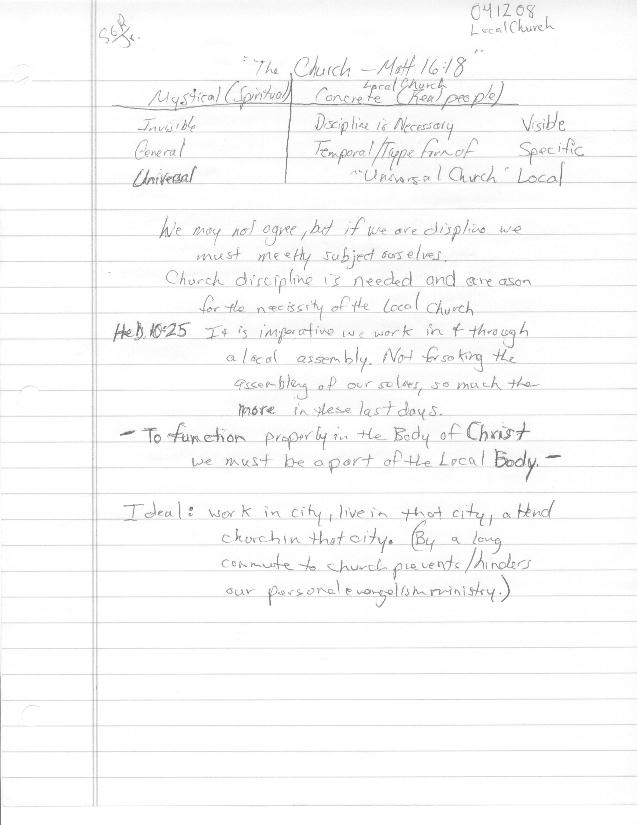 041208
Local Church
SGR/Jr.
"The Church - Matt. 16:18"
Local Church
Mystical (Spiritual) Concrete (Real people)
Invisible Discipline is Necessary Visible
General Temporal/Type form of Specific
Universal "Universal Church" Local
We may not agree, but if we are displine we
must meetly subject ourselves.
Church discipline is needed and a reason
for the necissity of the Local Church
Heb. 10:25 It is imperative we work in & through
a local assembly. Not forsaking the
assembling of our selves, so much the
more in these last days.
- To function properly in the Body of Christ
we must be a part of the Local Body. -
Ideal: work in city, live in that city, attend
church in that city. (By a long
commute to church prevents/hinders
our personal evangelism ministry.)